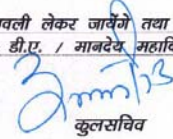 वली लेकर जायेंगे तथा
डी.ए. / मानदेय महावि
कुलसचिव